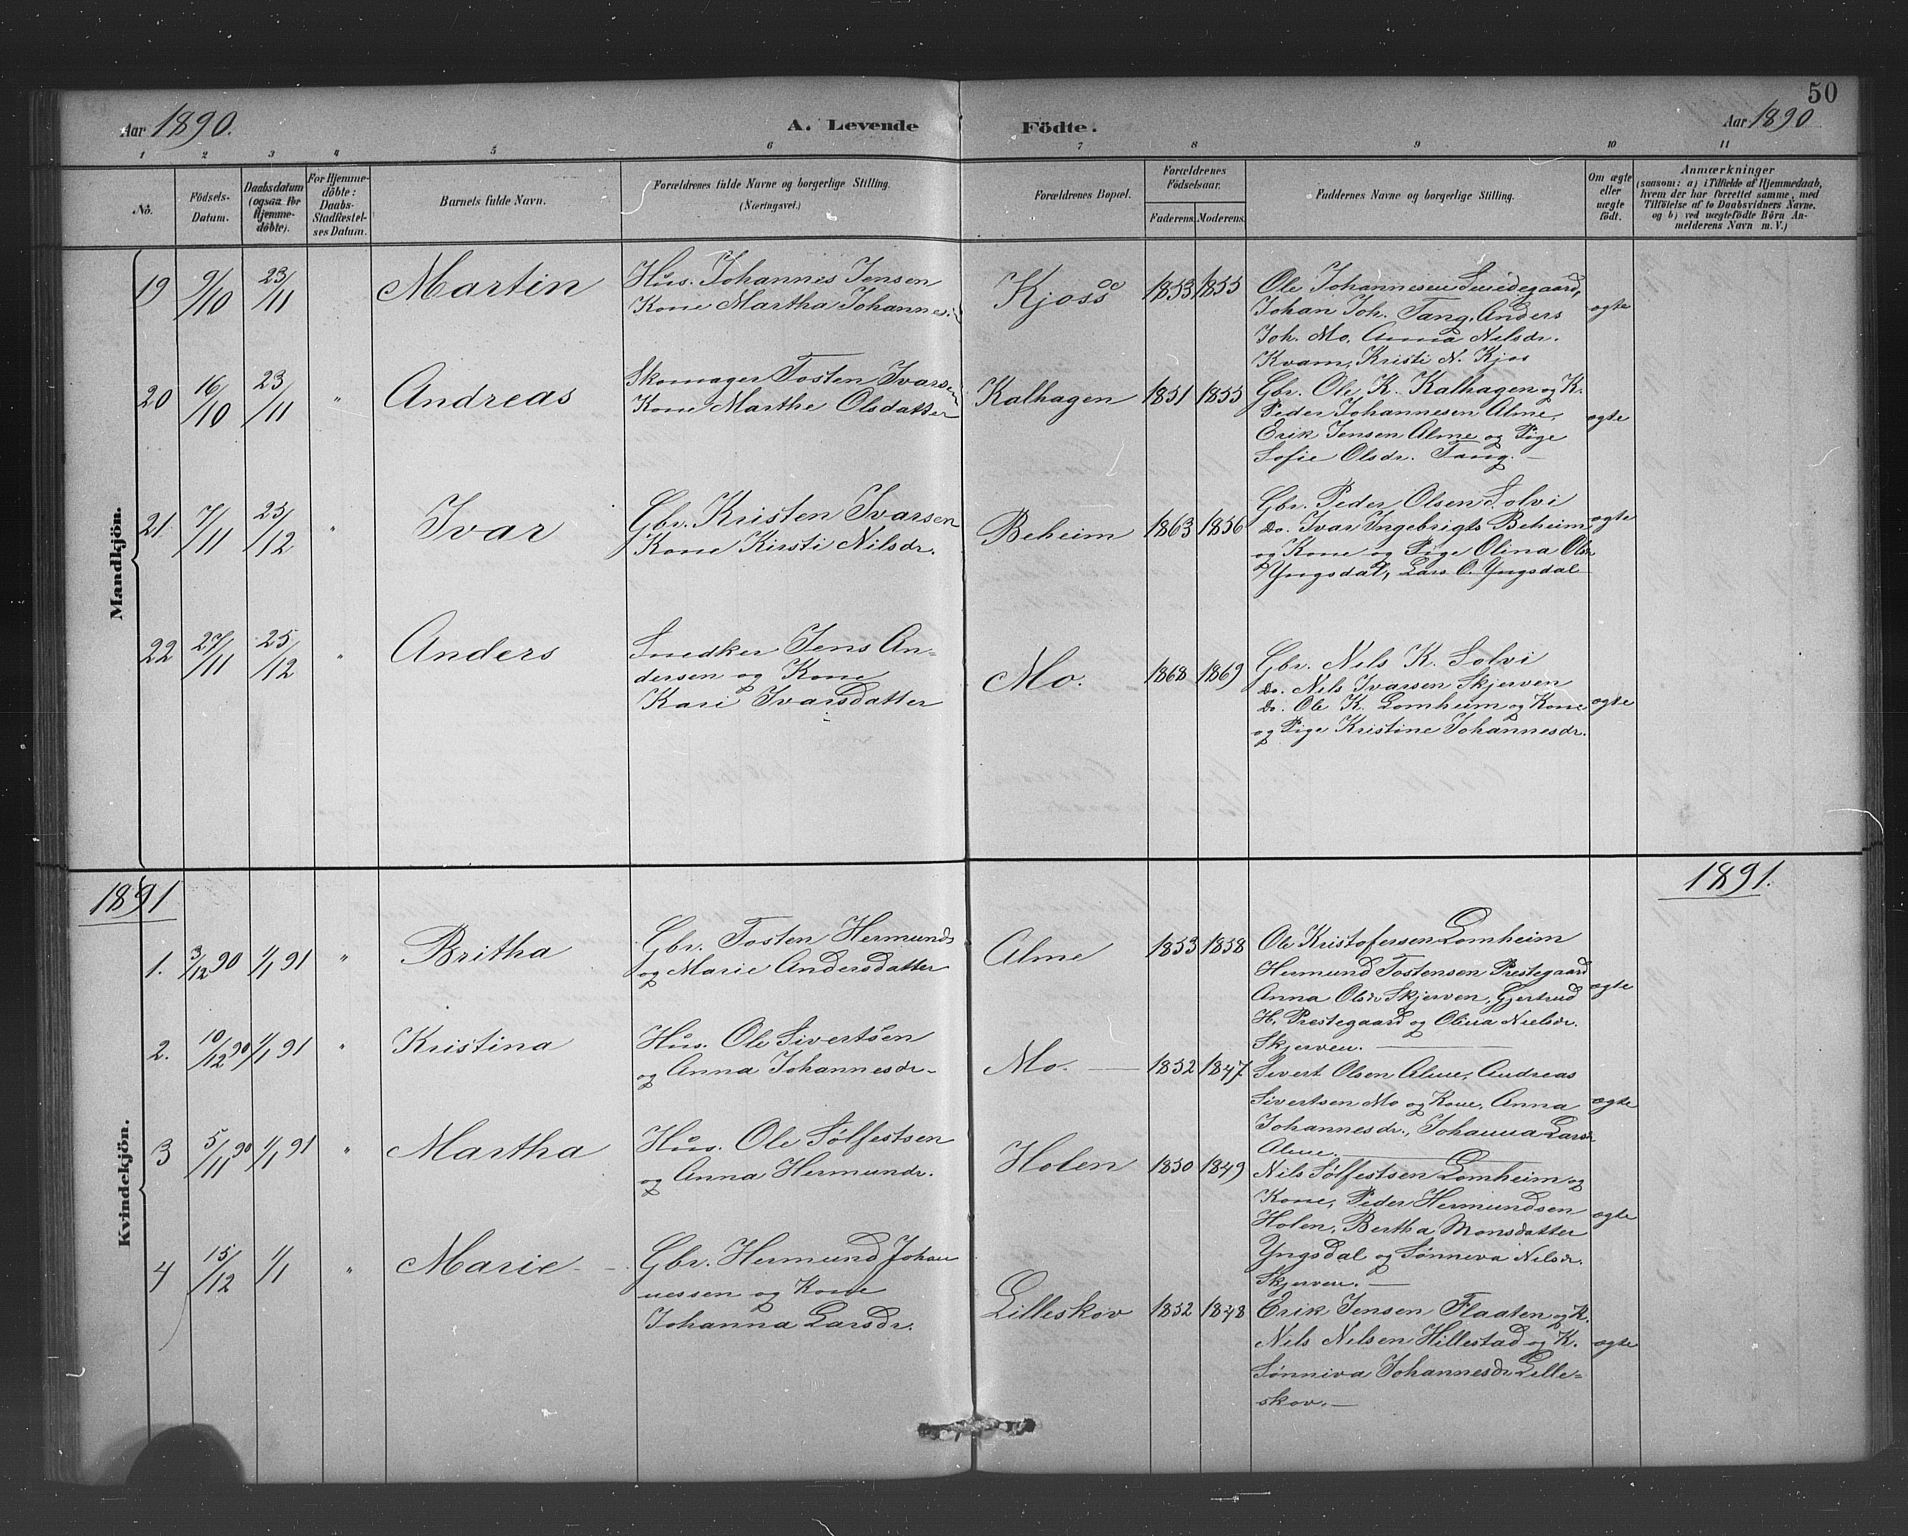 50
Aar 1890.
A. Levende Födte.
Aar 1890
1 2 3 4 5 6 7 8 9 10 11
No.
Födsels-Datum.
Daabsdatum (ogsaa for Hjemmedöbte).
For Hjemmedöbte: Daabs-Stadfæstelses Datum.
Barnets fulde Navn.
Forældrenes fulde Navne og borgerlige Stilling.
(Næringsvei.)
Forældrenes Bopæl.
Forældrenes Födselsaar.
Faderens. Moderens.
Faddernes Navne og borgerlige Stilling.
Om ægte eller uægte født.
Anmærkninger
(saasom: a) i Tilfælde af Hjemmedaab,
hvem der har forrettet samme, med
Tilföielse af to Daabsvidners Navne.
og b) ved uægtefödte Börn An-
melderens Navn m. V.)
Mandkjön.
19 9/10 23/11 Martin
Hus. Johannes Jensen
Kone Martha Johannes
Kjoss 1853 1855
Ole Johannesen
Johan Joh. Tang, Anders
Joh. Mo, Anna Nilsdr.
Kvam, Kristi N. Kjos
ægte
20 16/10 23/11 " Andreas
Skomager Tosten Ivarsen
Kone Marthe Olsdatter
Kalhagen 1851 1855
Gbr. Ole K. Kalhagen og K.
Peder Johannesen Alme,
Erik Jensen Alme og Pige
Sofie Olsdr. Tang. —
ægte
21 7/11 23/12 " Ivar
Gbr. Kristen Ivarsen
Kone Kirsti Nilsdr.
Beheim 1863 1856
Gbr. Peder Olsen Solvi
Do. Ivar Ingebrigts Beheim
og Kone og Pige Olina Olsdr
Yngsdal, Lars O. Yngsdal
ægte
22 27/11 25/12 " Anders
Snedker Jens An-
dersen og Kone
Kari Ivarsdatter
Mo. 1868 1869
Gbr. Nils K. Solvi
Do. Nils Ivarsen Skjerven
Do. Ole K. Lomheim og Kone
og Pige Kristine Johannesdr.
ægte
1891
1891.
Kvindekjön.
1. 3/12 90 1/1 91 " Britha
Gbr. Tosten Hermunds
og Marie Andersdatter
Alme 1853 1858
Ole Kristofersen Lomheim
Hermund Tostensen Prestegaard
Anna Olsdr Skjerven, Gjertrud
H. Prestegaard og Olina Nielsdr.
Skjerven. —
ægte
2. 10/12 90 1/1 91 " Kristina
Hus. Ole Sivertsen
og Anna Johannesdr.
Mo. — 1852 1847
Sivert Olsen Alme, Andreas
Sivertsen Mo og Kone, Anna
Johannesdr., Johanna Larsdr
Alme. —
ægte
3 5/11 90 1/1 91 " Martha
Hus. Ole Sølfestsen
og Anna Hermundr.
Holen 1850 1849
Nils Sølfestsen Lomheim og
Kone, Peder Hermundsen
Holen, Bertha Monsdatter
Yngsdal og Sønneva Nilsdr.
Skjerven. —
ægte
4 15/12 1/1 " Marie —
Gbr. Hermund Johan
nessen og Kone
Johanna Larsdr.
Lilleskov 1852 1848
Erik Jensen Flaaten og K.
Nils Nilsen Hillestad og K.
Sønniva Johannesdr Lille-
skov. —
ægte